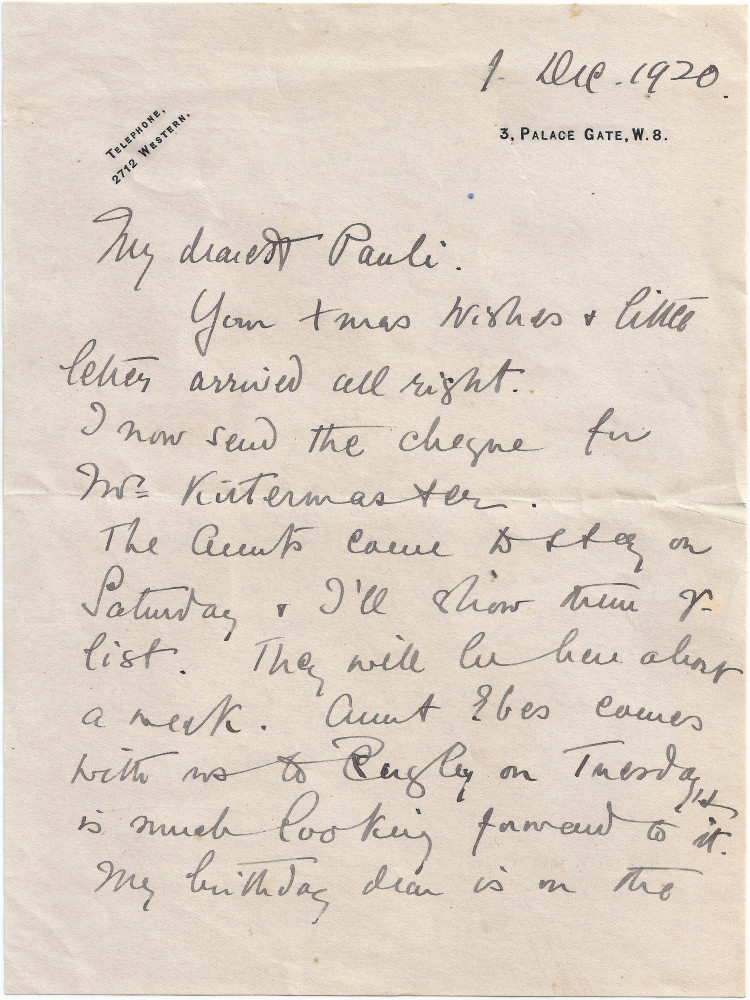 1. Dec. 1920.
TELEPHONE,
2712 WESTERN.
3, PALACE GATE, W. 8.
My dearest Pauli.
Your Xmas wishes & little
letter arrived all right.
I now send the cheque for
Mrs Kittermaster.
The Aunts come to stay on
Saturday & I'll show them yr
list. They will be here about
a week. Aunt Ebes comes
with us to Rugby on Tuesday &
is much looking forward to it.
My birthday dear is on the